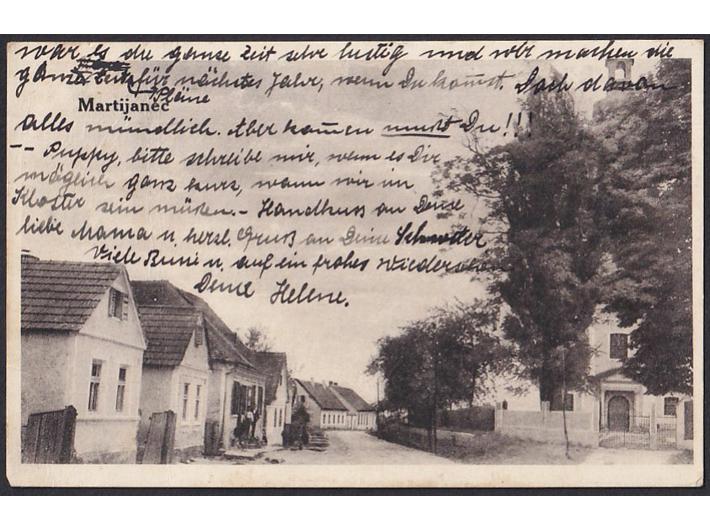 war es die ganze Zeit sehr lustig und wir machen die
ganze Zeit für nächstes Jahr, wenn Du kommst. Doch davon
Pläne
Martijanec
alles mündlich. Aber kommen musst Du!!!
-- Puppy, bitte schreibe mir, wenn es Dir
möglich ganz kurz, wann wir im
Kloster sein müssen. - Handkuss an Deine
liebe Mama u. herzl. Gruss an Deine Schwester
Viele Bussi u. auf ein frohes Wiedersehen
Deine Helene.